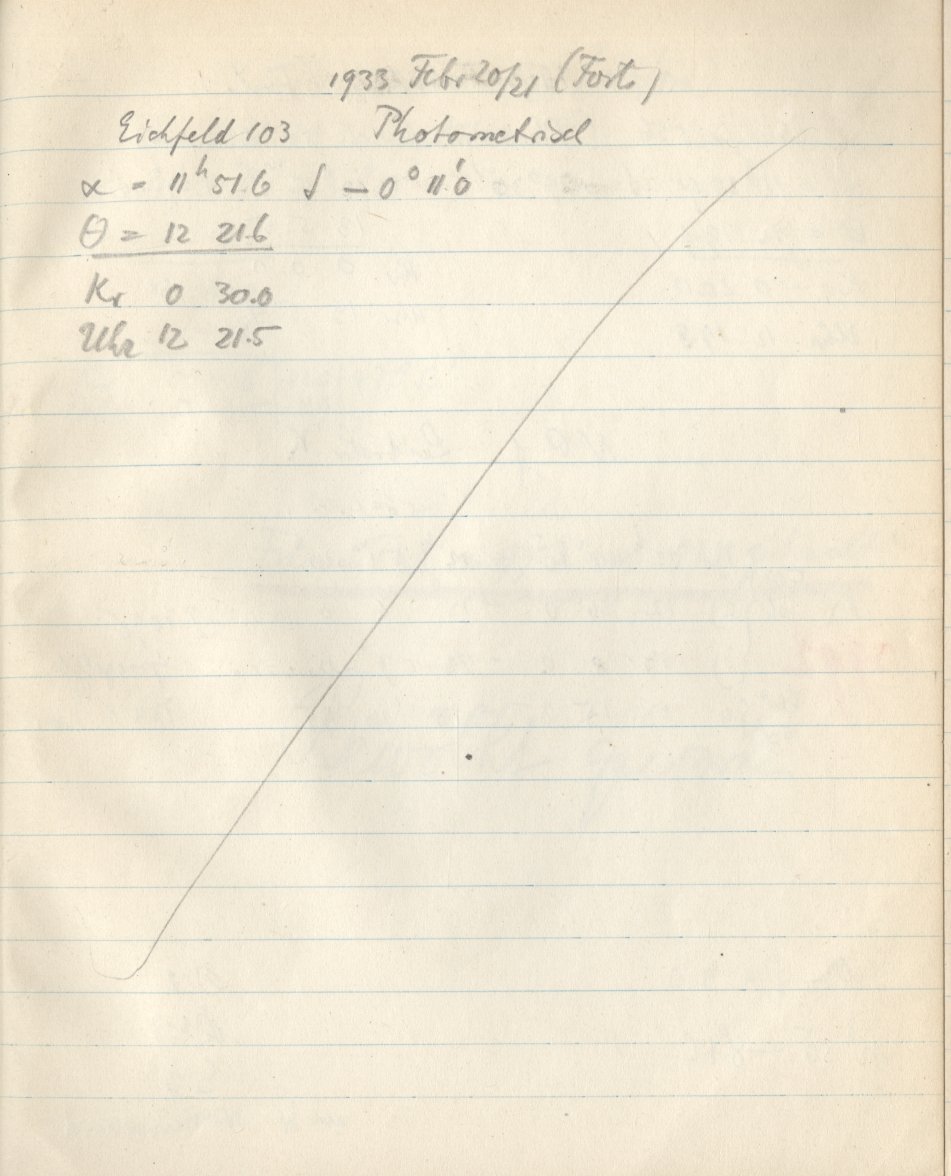 1933 Febr 20/21 (Forts)
Eichfeld 103 Photometrisch
α = 11ʰ 51.6 δ − 0° 11.'0
θ = 12 21.6
Kr 0 30.0
Uhr 12 21.5